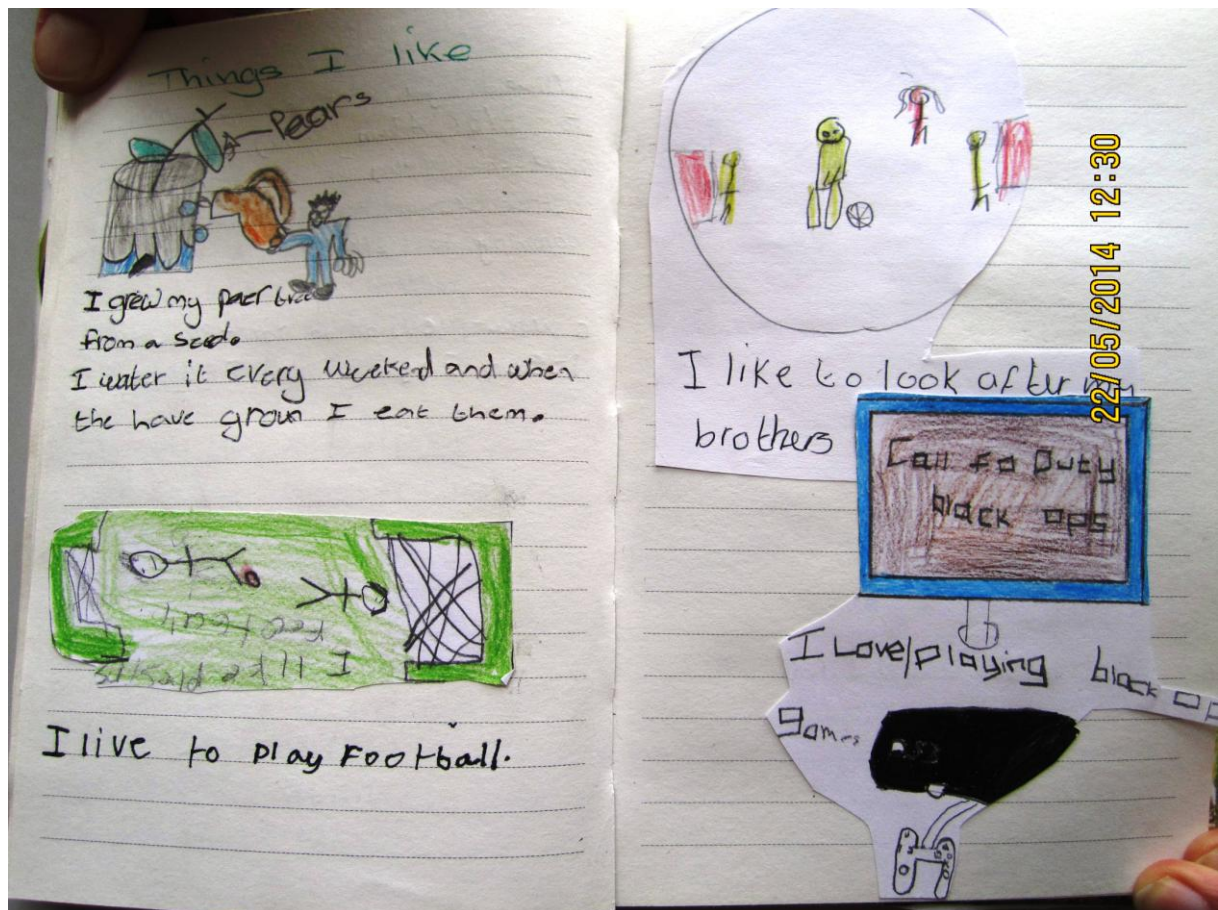 Things I like
Pears
I grew my paer tree
from a seed.
I water it every weeked and when
the have groun I eat them.
I like
Foot
I live to play Football.
I like to look after my
brothers
Call fo Duty
black ops
I Love/playing black op
games
22/05/2014 12:30